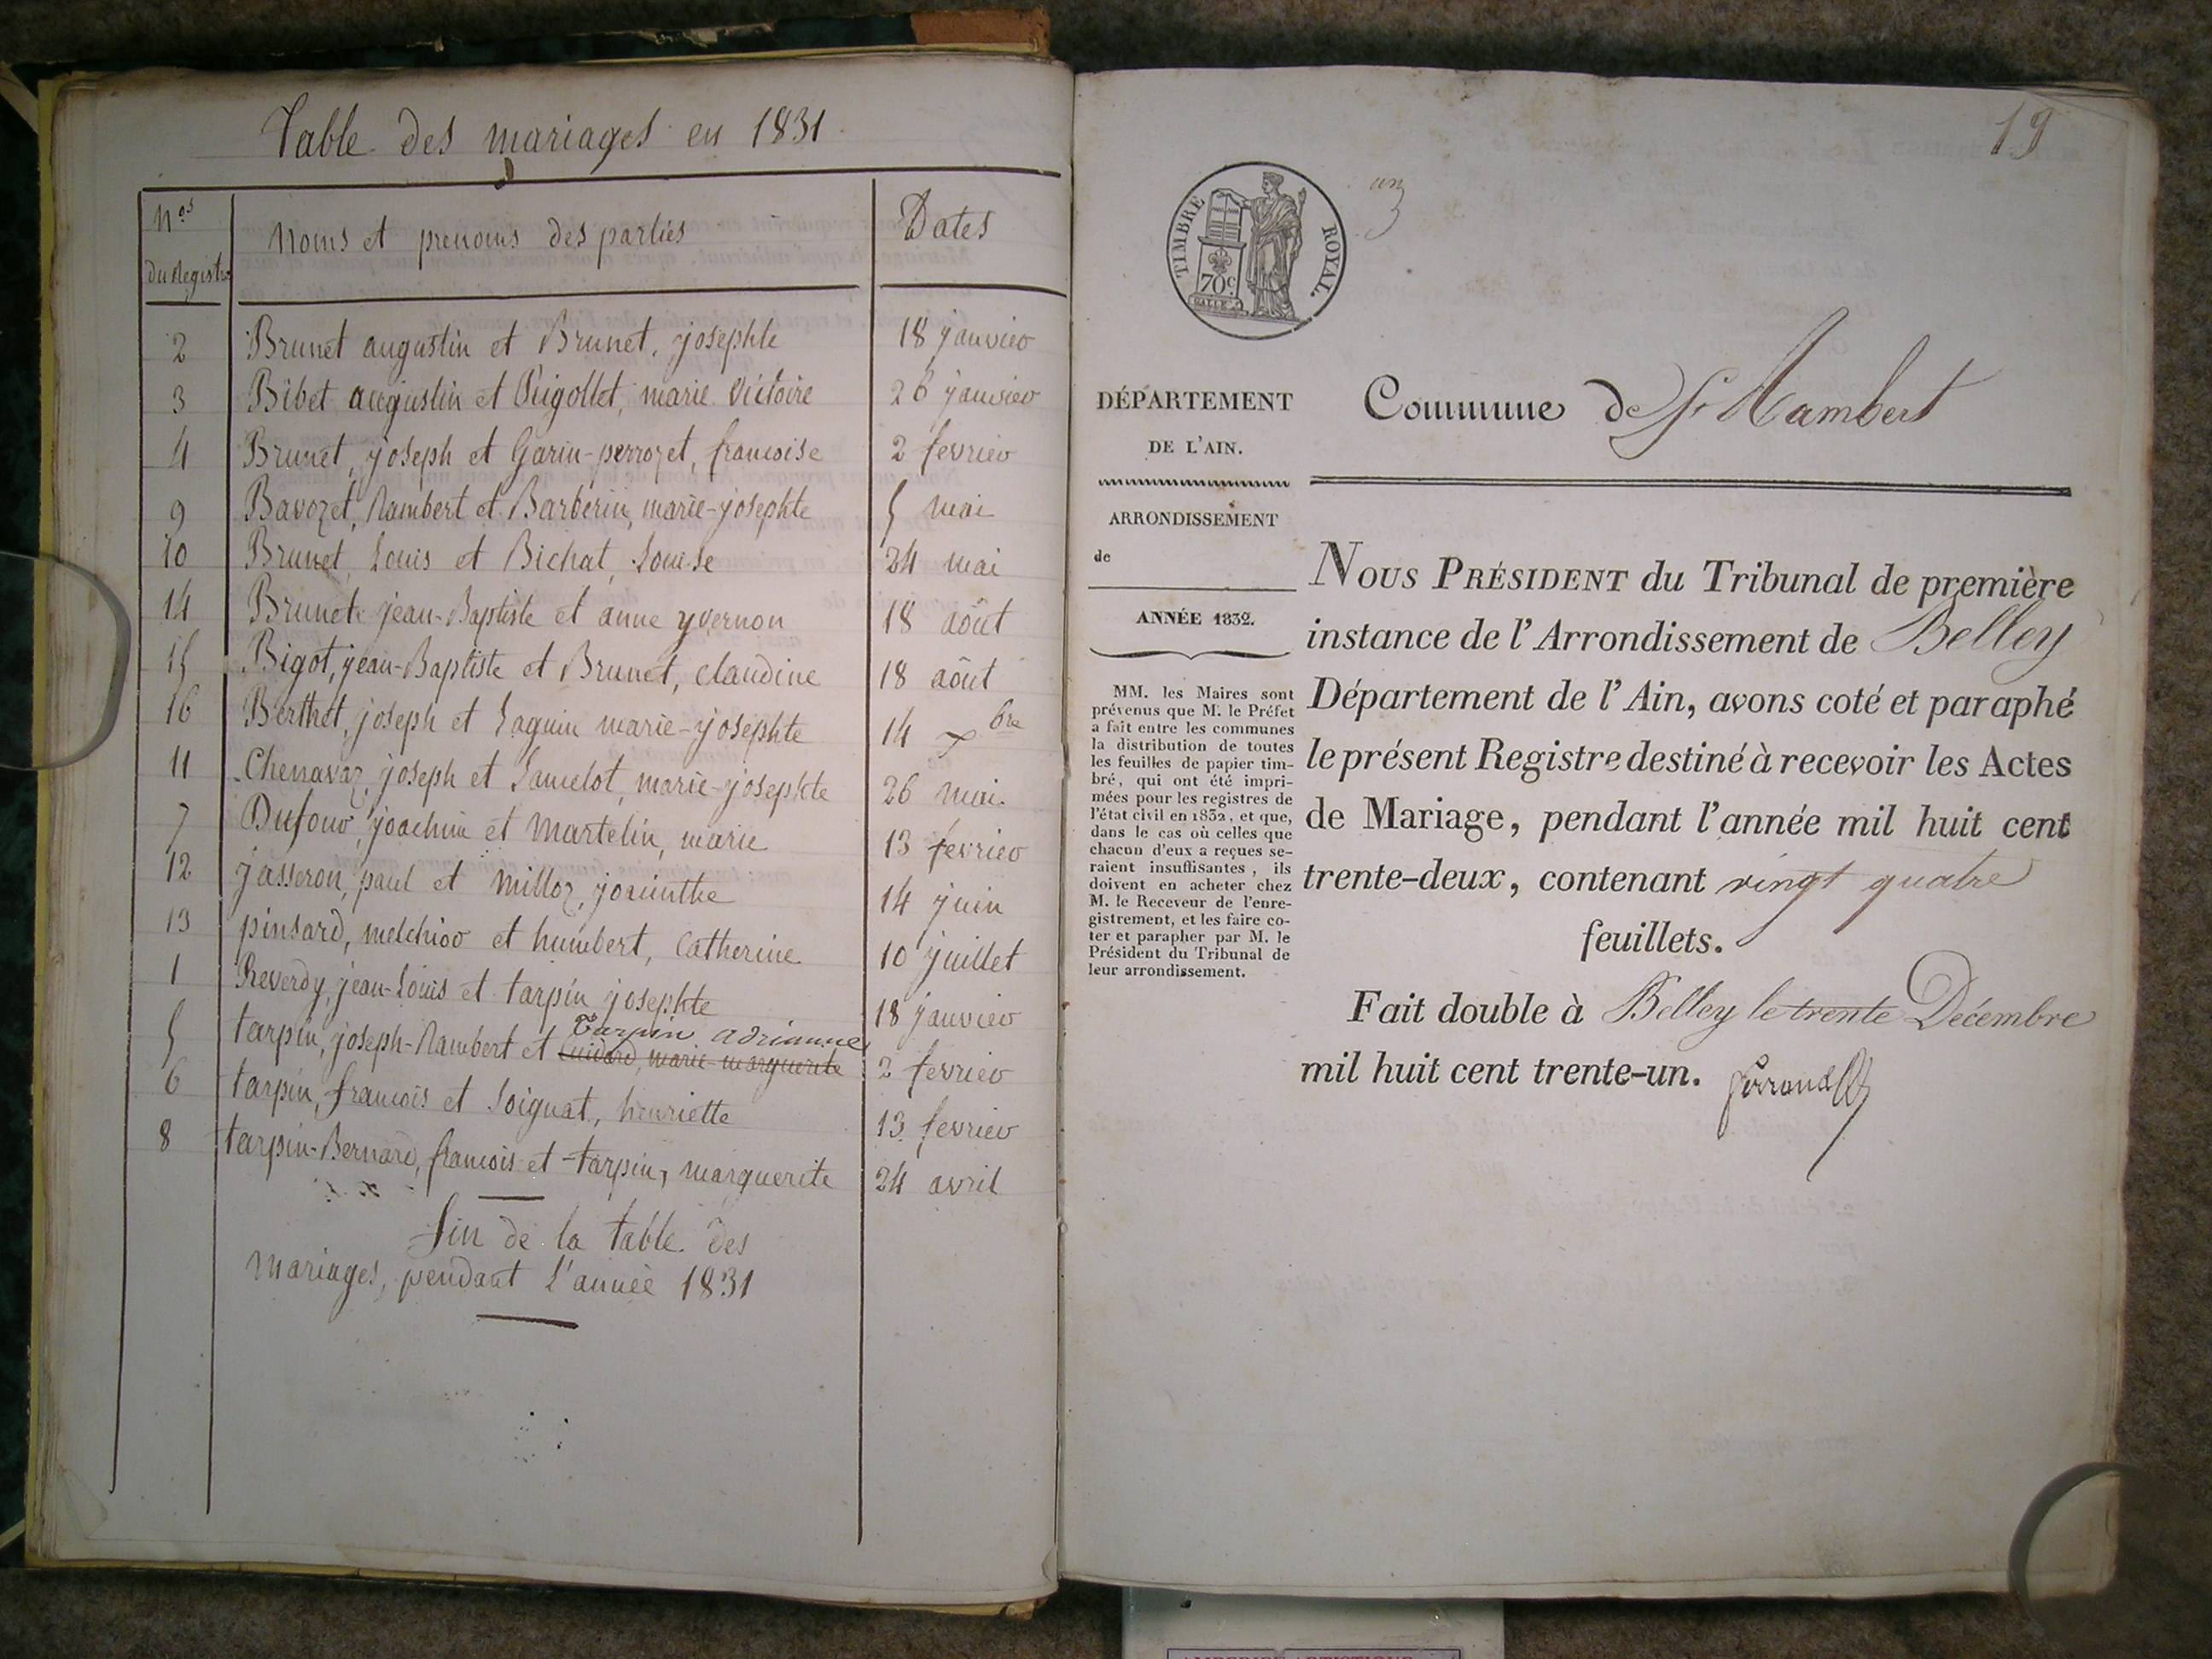 Table des mariages en 1831
Nos du Registre
Noms et prenoms des parties
Dates
2 Brunet augustin et Brunet, josephte 18 janvier
3 Bibet augustin et Puigollet, marie victoire 26 janvier
4 Brunet, joseph et Garin-perrozet, francoise 2 fevrier
9 Bavozet, Rambert et Barberin, marie-josephte 5 mai
10 Brunet, Louis et Bichat, Louise 24 mai
14 Brunet jean-Baptiste et anne yvernon 18 aôut
15 Bigot, jean-Baptiste et Brunet, claudine 18 aôut
16 Berthet, joseph et Laguin marie-josephte 14 Xbre
11 Chenavaz, joseph et Lancelot, marie-josephte 26 mai
7 Dufour, joachim et Martelin, marie 13 fevrier
12 jasseron, paul et Milloz, jacinthe 14 juin
13 pinsard, melchior et humbert, Catherine 10 juillet
1 Reverdy, jean-Louis et tarpin josephte 18 janvier
Tarpin adrianne
5 tarpin, joseph-Rambert et Cuidard, marie-marguerite 2 fevrier
6 tarpin, francois et Soignat, henriette 13 fevrier
8 tarpin-Bernard, francois et tarpin, marguerite 24 avril
fin de la table des
mariages, pendant L'année 1831
19
TIMBRE ROYAL.
70c
un
DÉPARTEMENT
DE L'AIN.
Commune de St Rambert
ARRONDISSEMENT
de
ANNÉE 1832.
MM. les Maires sont
prévenus que M. le Préfet
a fait entre les communes
la distribution de toutes
les feuilles de papier tim-
bré, qui ont été impri-
mées pour les registres de
l'état civil en 1832, et que,
dans le cas où celles que
chacun d'eux a reçues se-
raient insuffisantes, ils
doivent en acheter chez
M. le Receveur de l'enre-
gistrement, et les faire co-
ter et parapher par M. le
Président du Tribunal de
leur arrondissement.
NOUS PRÉSIDENT du Tribunal de première
instance de l'Arrondissement de Belley
Département de l'Ain, avons coté et paraphé
le présent Registre destiné à recevoir les Actes
de Mariage, pendant l'année mil huit cent
trente-deux, contenant vingt quatre
feuillets.
Fait double à Belley le trente Décembre
mil huit cent trente-un.